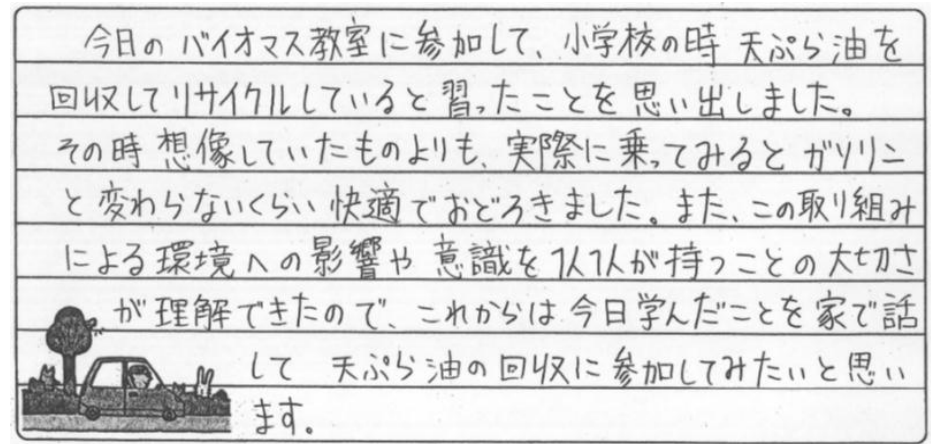 今日のバイオマス教室に参加して、小学校の時天ぷら油を
回収してリサイクルしていると習ったことを思い出しました。
その時想像していたものよりも、実際に乗ってみるとガソリン
と変わらないくらい快適でおどろきました。また、この取り組み
による環境への影響や意識を1人1人が持つことの大切さ
が理解できたので、これからは今日学んだことを家で話
して 天ぷら油の回収に参加してみたいと思い
ます。